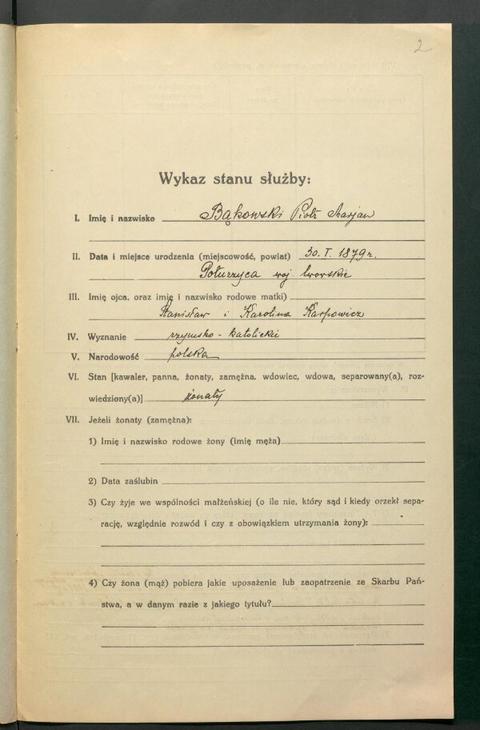 2
Wykaz stanu służby:
I. Imię i nazwisko Bąkowski Piotr Marjan
II. Data i miejsce urodzenia (miejscowość, powiat) 30. I. 1879 r.
Poturzyca woj lwowskie
III. Imię ojca, oraz imię i nazwisko rodowe matki)
Stanisław i Karolina Karpowicz
IV. Wyznanie rzymsko-katolickie
V. Narodowość polska
VI. Stan [kawaler, panna, żonaty, zamężna, wdowiec, wdowa, separowany(a), roz-
wiedziony(a)] żonaty
VII. Jeżeli żonaty (zamężna):
1) Imię i nazwisko rodowe żony (imię męża)
2) Data zaślubin
3) Czy żyje we wspólności małżeńskiej (o ile nie, który sąd i kiedy orzekł sepa-
rację, względnie rozwód i czy z obowiązkiem utrzymania żony):
4) Czy żona (mąż) pobiera jakie uposażenie lub zaopatrzenie ze Skarbu Pań-
stwa, a w danym razie z jakiego tytułu?